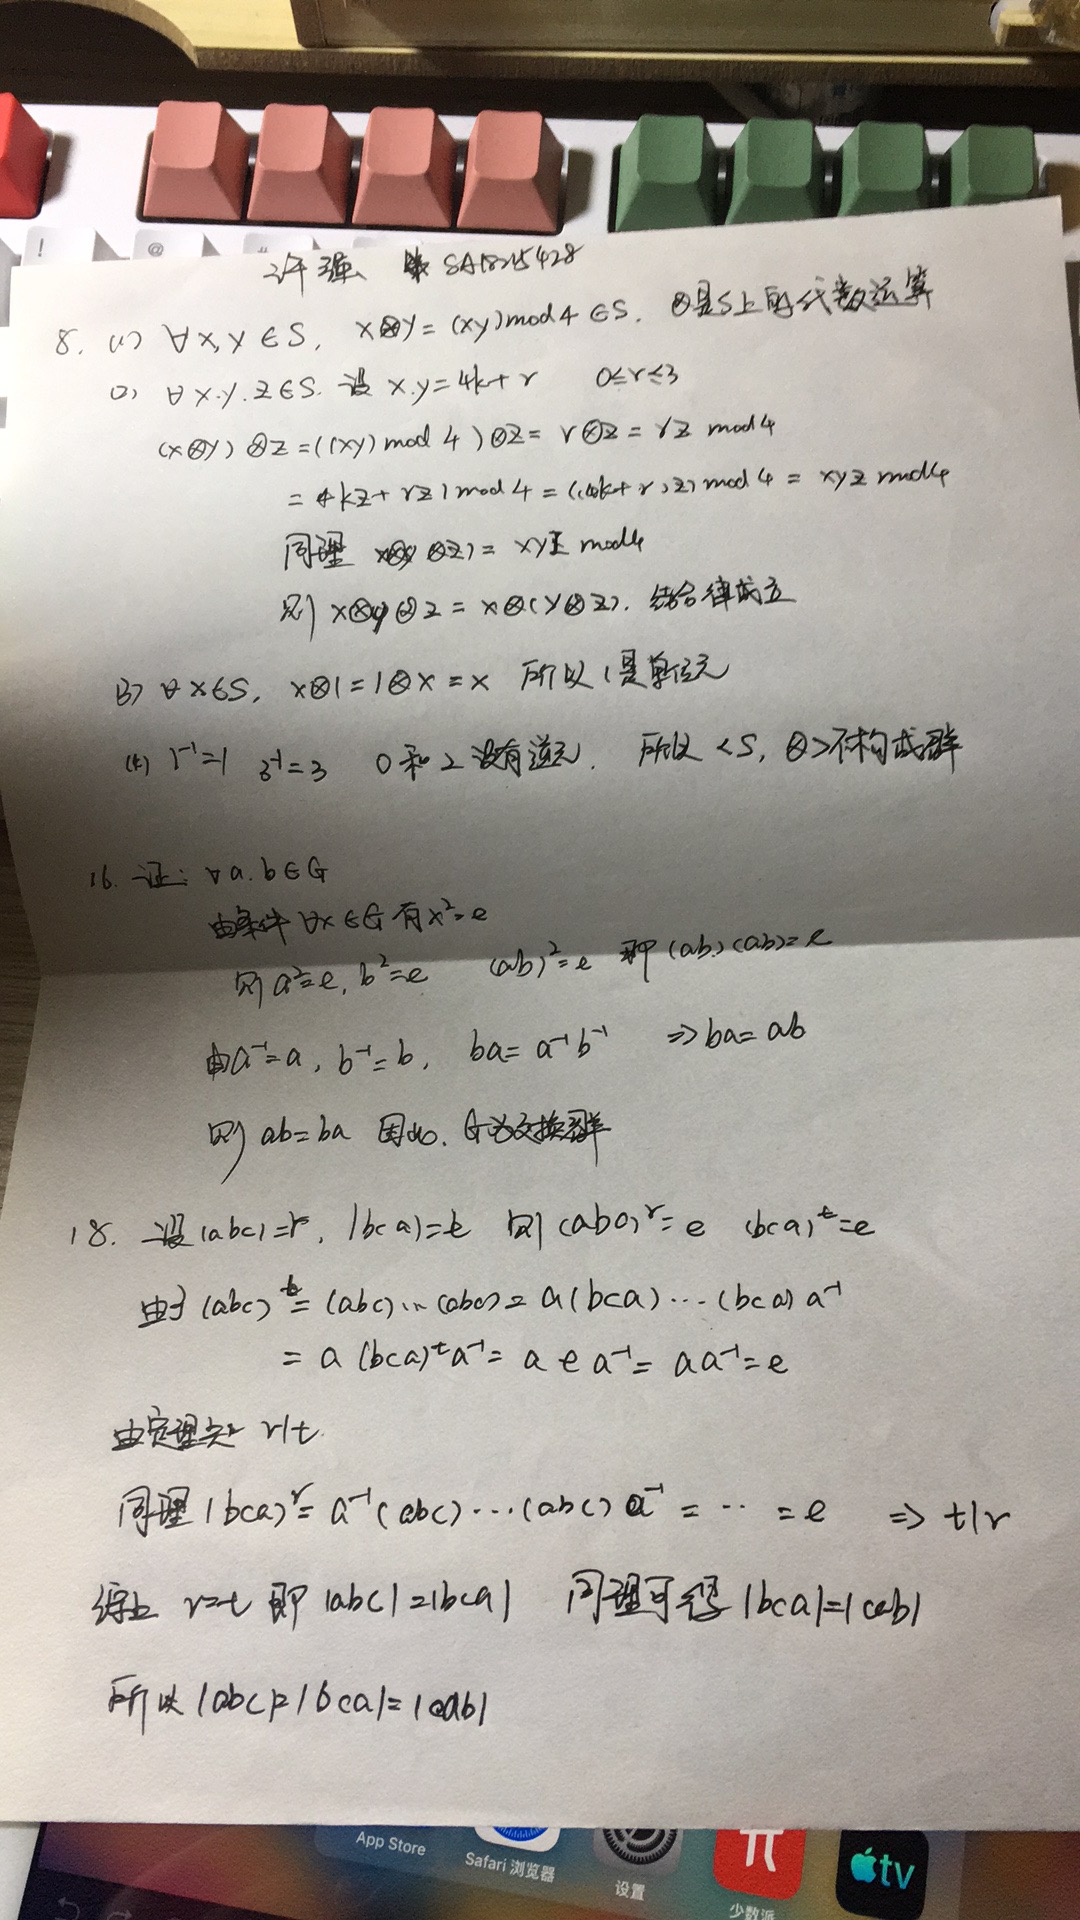 !
@
#
许强 SA18215428
8. (1) ∀x,y∈S, x⊗y=(xy)mod4∈S. ⊗是S上的代数运算
(2) ∀x.y.z∈S. 设 x.y=4k+r 0≤r≤3
(x⊗y)⊗z=((xy)mod 4)⊗z=r⊗z=rz mod4
=4kz+rz)mod4=((4k+r)z)mod4=xyz mod4
同理 x⊗(y⊗z)=xyz mod4
则 x⊗y⊗z=x⊗(y⊗z). 结合律成立
(3) ∀x∈S, x⊗1=1⊗x=x 所以1是单位元
(4) 1⁻¹=1 3⁻¹=3 0和2没有逆元. 所以<S,⊗>不构成群
16. 证: ∀a.b∈G
由条件 ∀x∈G有x²=e
则a²=e, b²=e (ab)²=e 即(ab)(ab)=e
由a⁻¹=a, b⁻¹=b, ba=a⁻¹b⁻¹ ⇒ba=ab
则ab=ba 因此. G为交换群
18. 设|abc|=r, |bca|=t 则(abc)ʳ=e (bca)ᵗ=e
由于(abc)ᵗ=(abc)…(abc)=a(bca)…(bca)a⁻¹
=a(bca)ᵗa⁻¹=a e a⁻¹=aa⁻¹=e
由定理知 r|t
同理|bca)ʳ=a⁻¹(abc)…(abc)a⁻¹=…=e ⇒t|r
综上 r=t 即|abc|=|bca| 同理可得|bca|=|cab|
所以|abc|=|bca|=|cab|
App Store
Safari 浏览器
设置
少数派
tv